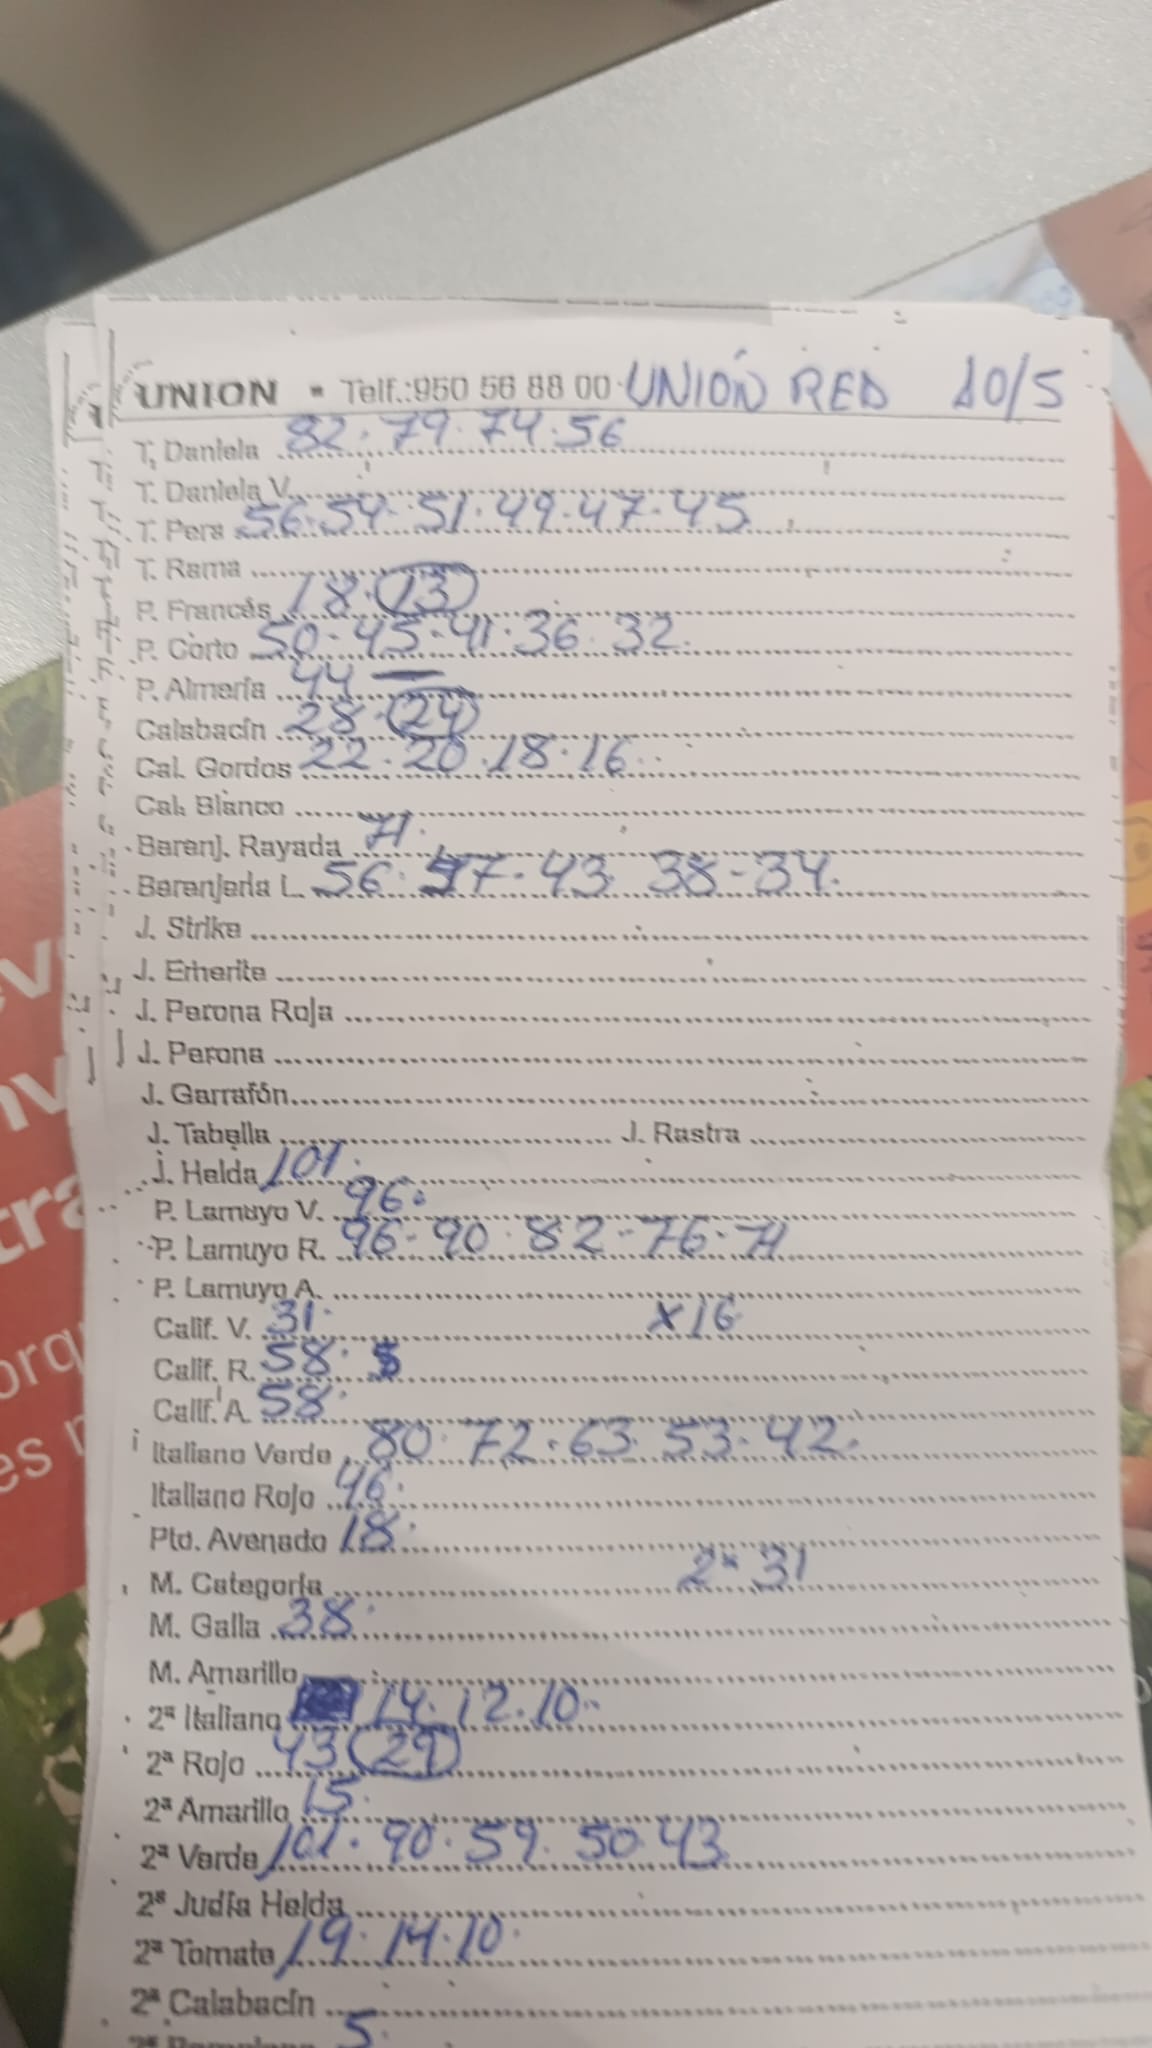 UNION - Telf.:950 56 88 00 UNIÓN RED 10/5
T. Daniela 82.79.74.56
T. Daniela V.
T. Pera 56.54.51.49.47.45
T. Rama
P. Francés 18.(13)
P. Corto 50-45-41.36.32.
P. Almería 44 —
Calabacín 28.(24)
Cal. Gordos 22.20.18.16.
Cal. Blanco
Berenj. Rayada 71.
Berenjena L. 56. 47-43. 38-34.
J. Strike
J. Erherite
J. Perona Roja
J. Perona
J. Garrafón
J. Tabella J. Rastra
J. Helda 101.
P. Lamuyo V. 96.
P. Lamuyo R. 96-90.82-76.71
P. Lamuyo A.
Calif. V. 31. x16.
Calif. R. 58.
Calif. A. 58.
Italiano Verde 80.72.63.53.42.
Italiano Rojo 46.
Pto. Avenado 18.
M. Categoría 2ª 31
M. Galia 38.
M. Amarillo
2ª Italiano 14.12.10.
2ª Rojo 43 (29)
2ª Amarillo 15.
2ª Verde 101.90.59.50.43.
2ª Judía Helda
2ª Tomate 19.14.10.
2ª Calabacín
5.